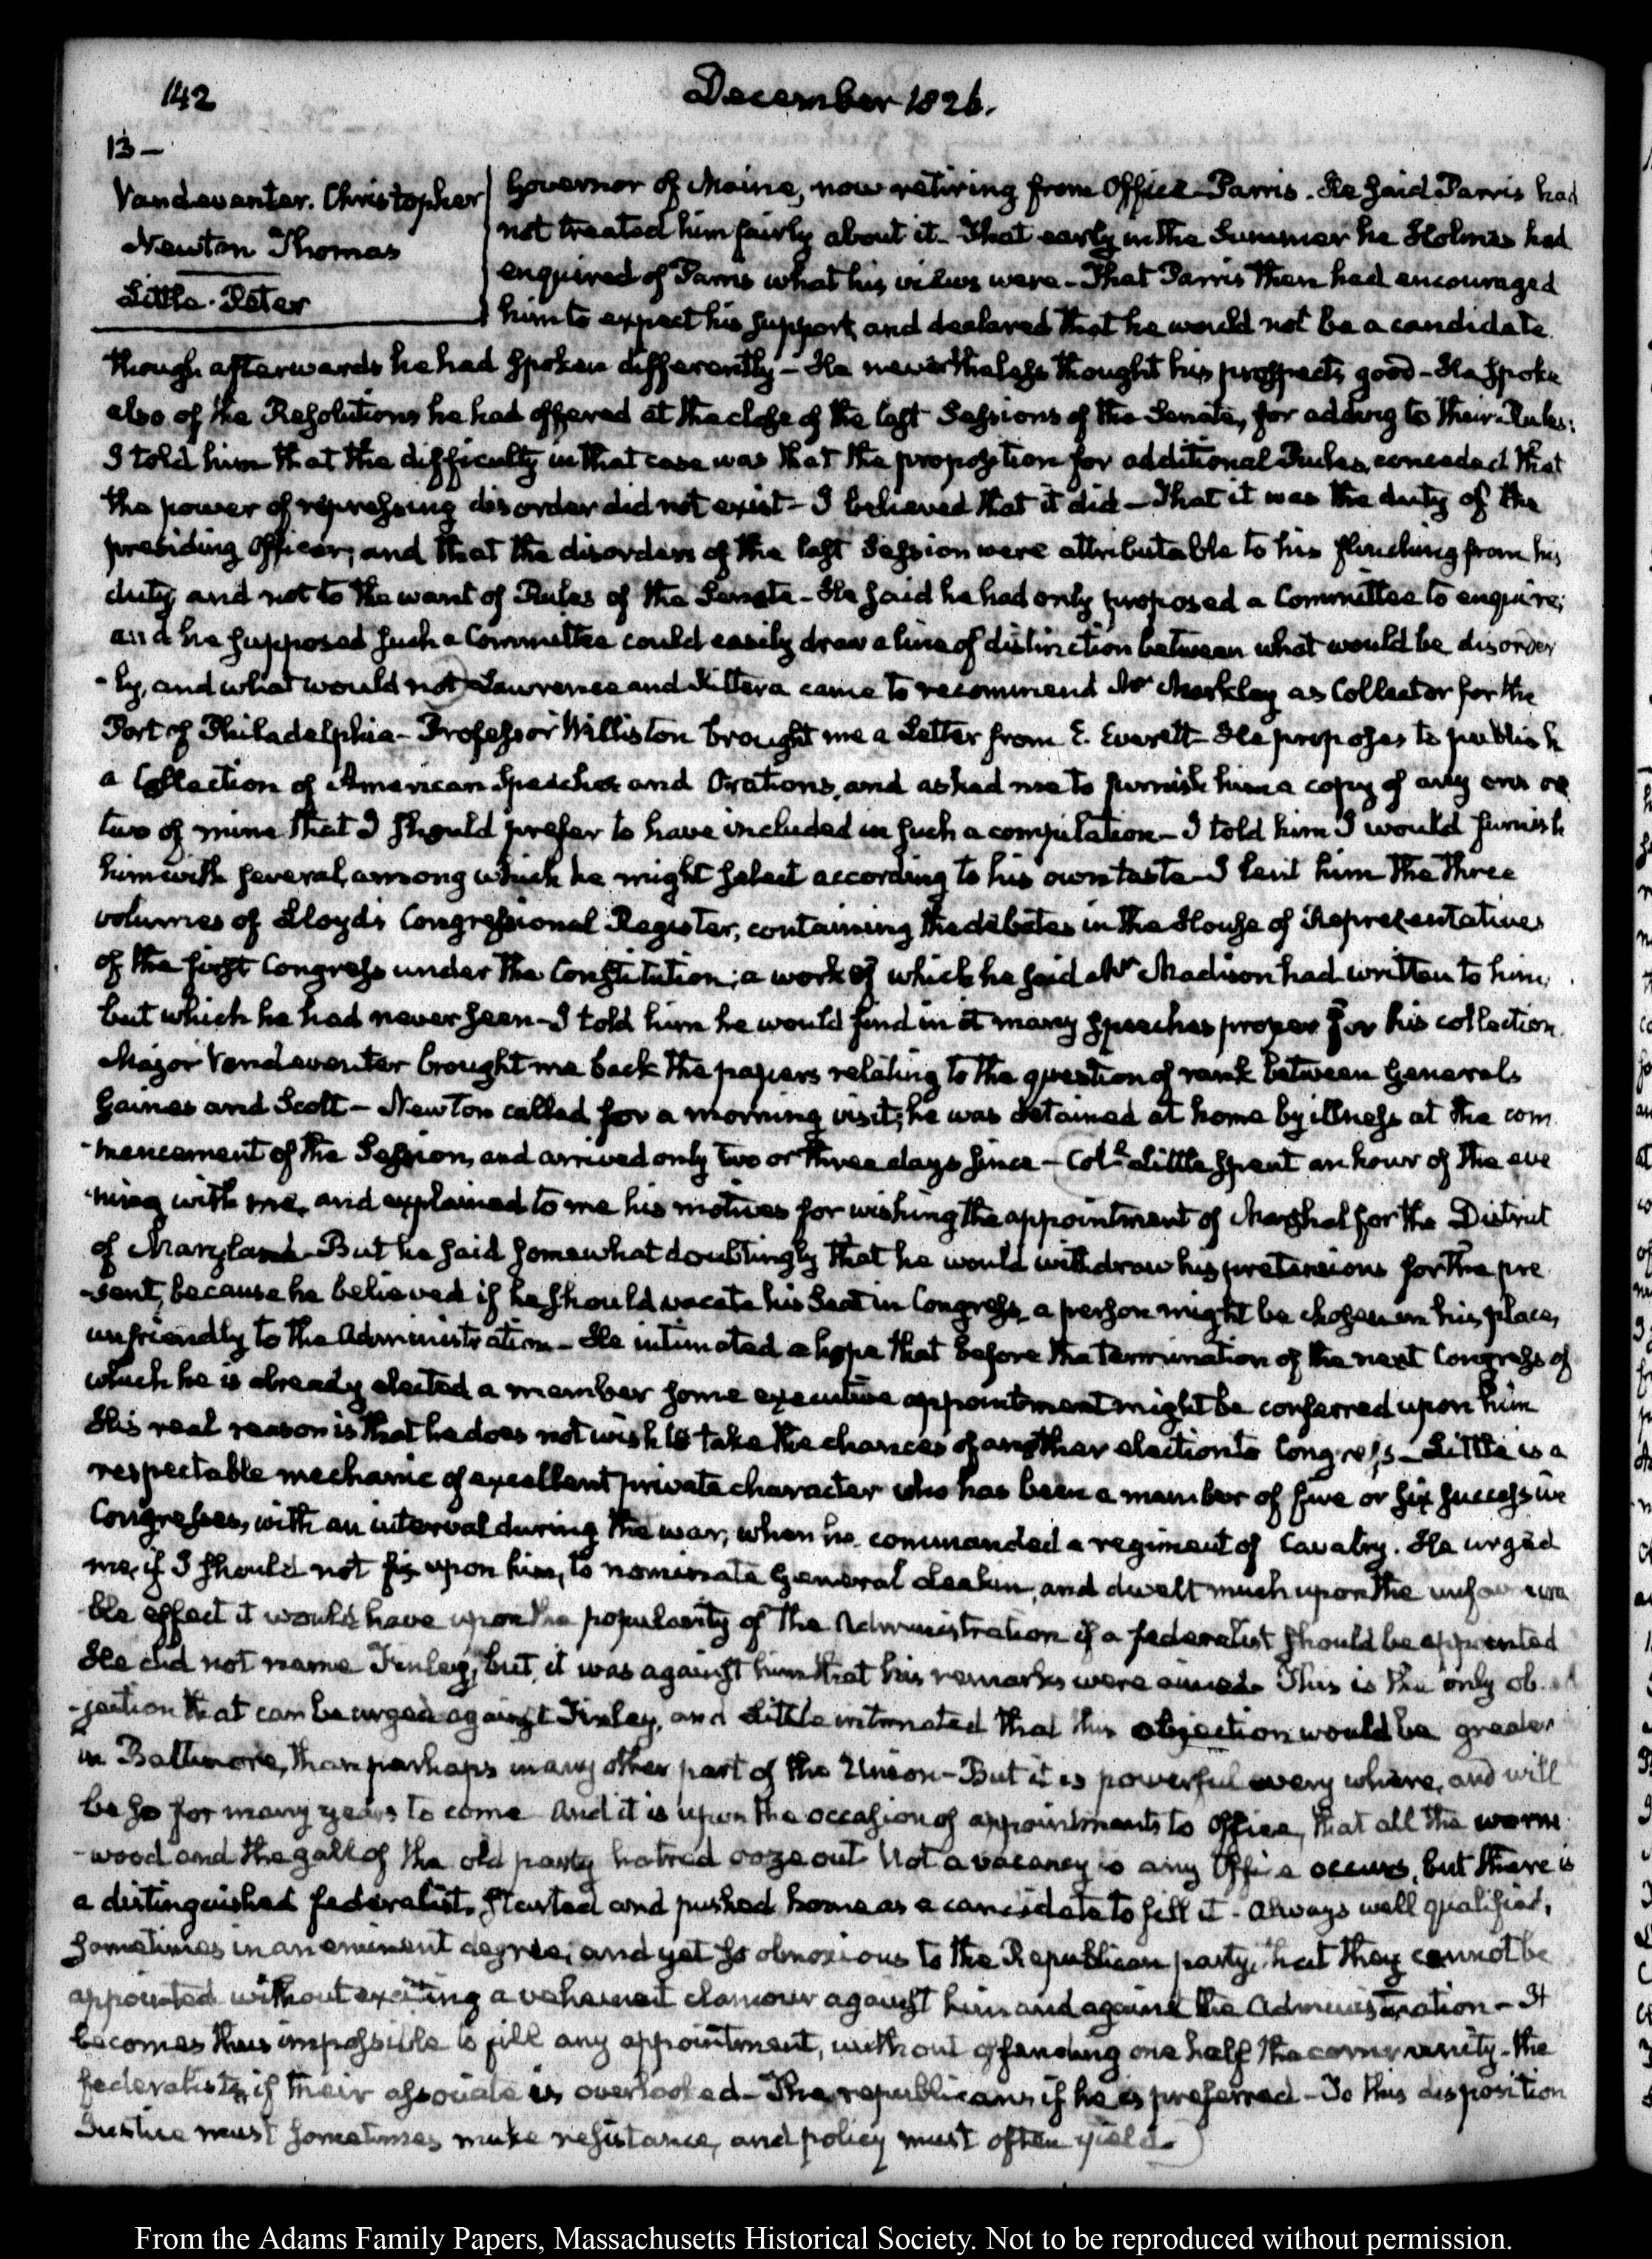 142
December 1826.
13 —
Vandeventer. Christopher
Newton Thomas
Little. Peter
Governor of Maine, now retiring from Office—Parris. He said Parris had
not treated him fairly about it. That early in the Summer he Holmes had
enquired of Parris what his views were—That Parris then had encouraged
him to expect his support, and declared that he would not be a candidate.
though afterwards he had spoken differently—He nevertheless thought his prospects good—He spoke
also of the Resolutions he had offered at the close of the last Sessions of the Senate, for adding to their Rules.
I told him that the difficulty in that case was that the proposition for additional Rules, conceded that
the power of repressing disorder did not exist—I believed that it did—That it was the duty of the
presiding Officer; and that the disorders of the last Session were attributable to his flinching from his
duty and not to the want of Rules of the Senate—He said he had only proposed a Committee to enquire;
and he supposed such a Committee could easily draw a line of distinction between what would be disorder
-ly, and what would not. Lawrence and Kittera came to recommend Mr Markley as Collector for the
Port of Philadelphia—Professor Williston brought me a Letter from E. Everett—He proposes to publish
a Collection of American Speeches and Orations, and asked me to furnish him a copy of any one or
two of mine that I should prefer to have included in such a compilation—I told him I would furnish
him with several, among which he might select according to his own taste—I lent him the three
volumes of Lloyd's Congressional Register, containing the debates in the House of Representatives
of the first Congress under the Constitution; a work of which he said Mr Madison had written to him;
but which he had never seen—I told him he would find in it many speeches proper for his collection.
Major Vandeventer brought me back the papers relating to the question of rank between Generals
Gaines and Scott—Newton called for a morning visit; he was detained at home by illness at the com
-mencement of the Session, and arrived only two or three days since—Coll. Little spent an hour of the eve
-ning with me, and explained to me his motives for wishing the appointment of Marshal for the District
of Maryland—But he said somewhat doubtingly that he would withdraw his pretensions for the pre
-sent, because he believed if he should vacate his Seat in Congress, a person might be chosen in his place,
unfriendly to the Administration—He intimated a hope that before the termination of the next Congress of
which he is already elected a member some executive appointment might be conferred upon him
His real reason is that he does not wish to take the chances of another election to Congress—Little is a
respectable mechanic of excellent private character who has been a member of five or six successive
Congresses, with an interval during the war, when he commanded a regiment of Cavalry. He urged
me, if I should not fix upon him, to nominate General Leakin, and dwelt much upon the unfavoura
-ble effect it would have upon the popularity of the Administration if a federalist should be appointed
He did not name Finley, but it was against him that his remarks were aimed. This is the only ob
-jection that can be urged against Finley, and Little intimated that this objection would be greater
in Baltimore, than perhaps in any other part of the Union—But it is powerful every where, and will
be so for many years to come—And it is upon the occasion of appointments to Office, that all the worm
-wood and the gall of the old party hatred ooze out. Not a vacancy to any Office occurs, but there is
a distinguished federalist, started and pushed home as a candidate to fill it—always well qualified,
sometimes in an eminent degree; and yet so obnoxious to the Republican party, that they cannot be
appointed without exciting a vehement clamour against him and against the Administration—It
becomes thus impossible to fill any appointment, without offending one half the community—the
federalists, if their associate is overlooked—The republicans if he is preferred—To this disposition
Justice must sometimes make resistance, and policy must often yield.
From the Adams Family Papers, Massachusetts Historical Society. Not to be reproduced without permission.